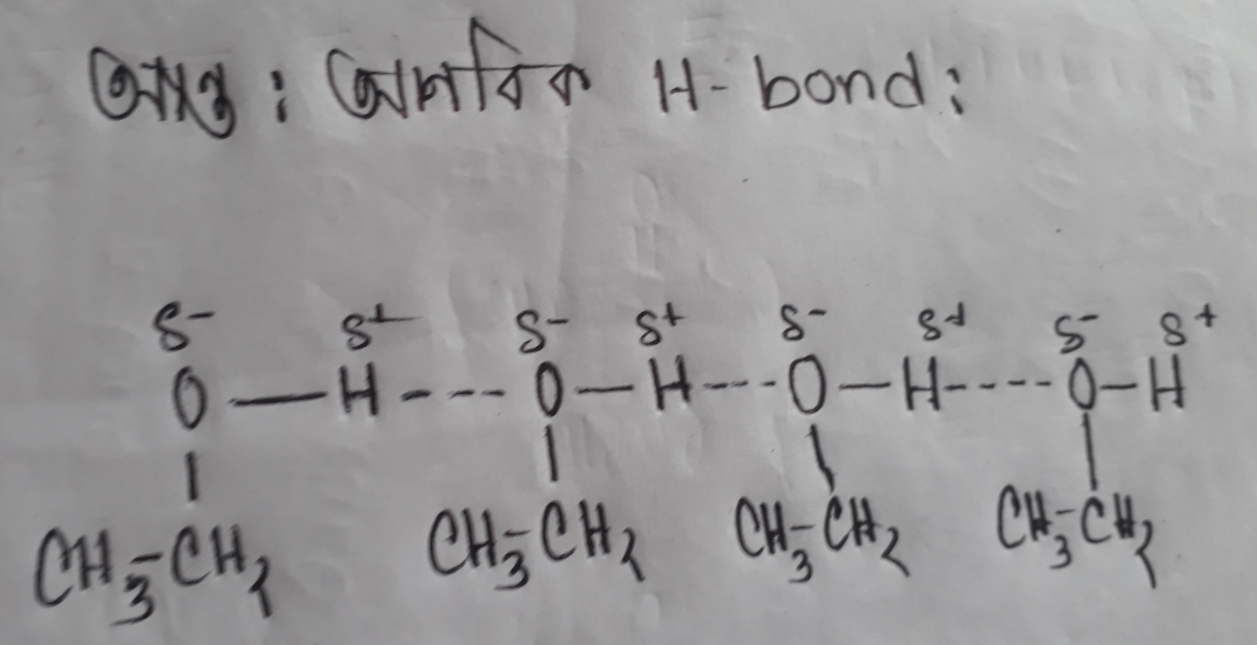 আন্তঃআনবিক H-bond:
δ- δ+ δ- δ+ δ- δ+ δ- δ+
O—H----O—H---O—H----O-H
| | | |
CH3-CH2 CH3-CH2 CH3-CH2 CH3-CH2